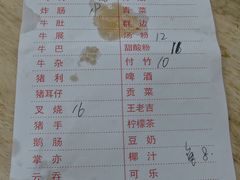 炸肠 春菜
牛肚 群边
牛展 汤粉 12
牛巴 甜酸粉 16
牛杂 付竹 10
猪利 啤酒
猪耳仔 贡菜
叉烧 16 王老吉
猪手 柠檬茶
鹅肠 豆奶
掌亦 椰汁 8
云吞 可乐